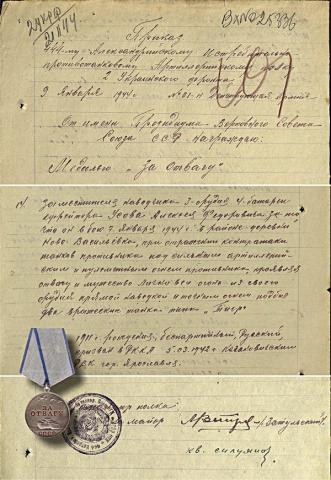 Вх№ 25336
Приказ
Александрийскому Истребительно
противотанковому Артиллерийскому полку
2 Украинского фронта
9 Января 1944 г. № 01-н Действующая армия
От имени Президиума Верховного Совета
Союза ССР награждаю:
Медалью "За Отвагу"
Заместителя наводчика 3 орудия 4 батареи
ефрейтора Усова Алексея Федоровича за то
что он в бою 7 Января 1944 г. в районе деревни
Ново-Васильевка, при отражении контратаки
танков противника под сильным артиллерий-
ским и пулеметным огнем противника, проявляя
отвагу и мужество лично вел огонь из своего
орудия прямой наводкой и точным огнем подбил
два вражеских танка типа "Тигр"
1911 г. рождения, беспартийный, Русский,
призван в РККА 5.03.1942 г.
РВК гор. Ярославля.
ЗА
ОТВАГУ
СССР
полка
майор /Затульский/